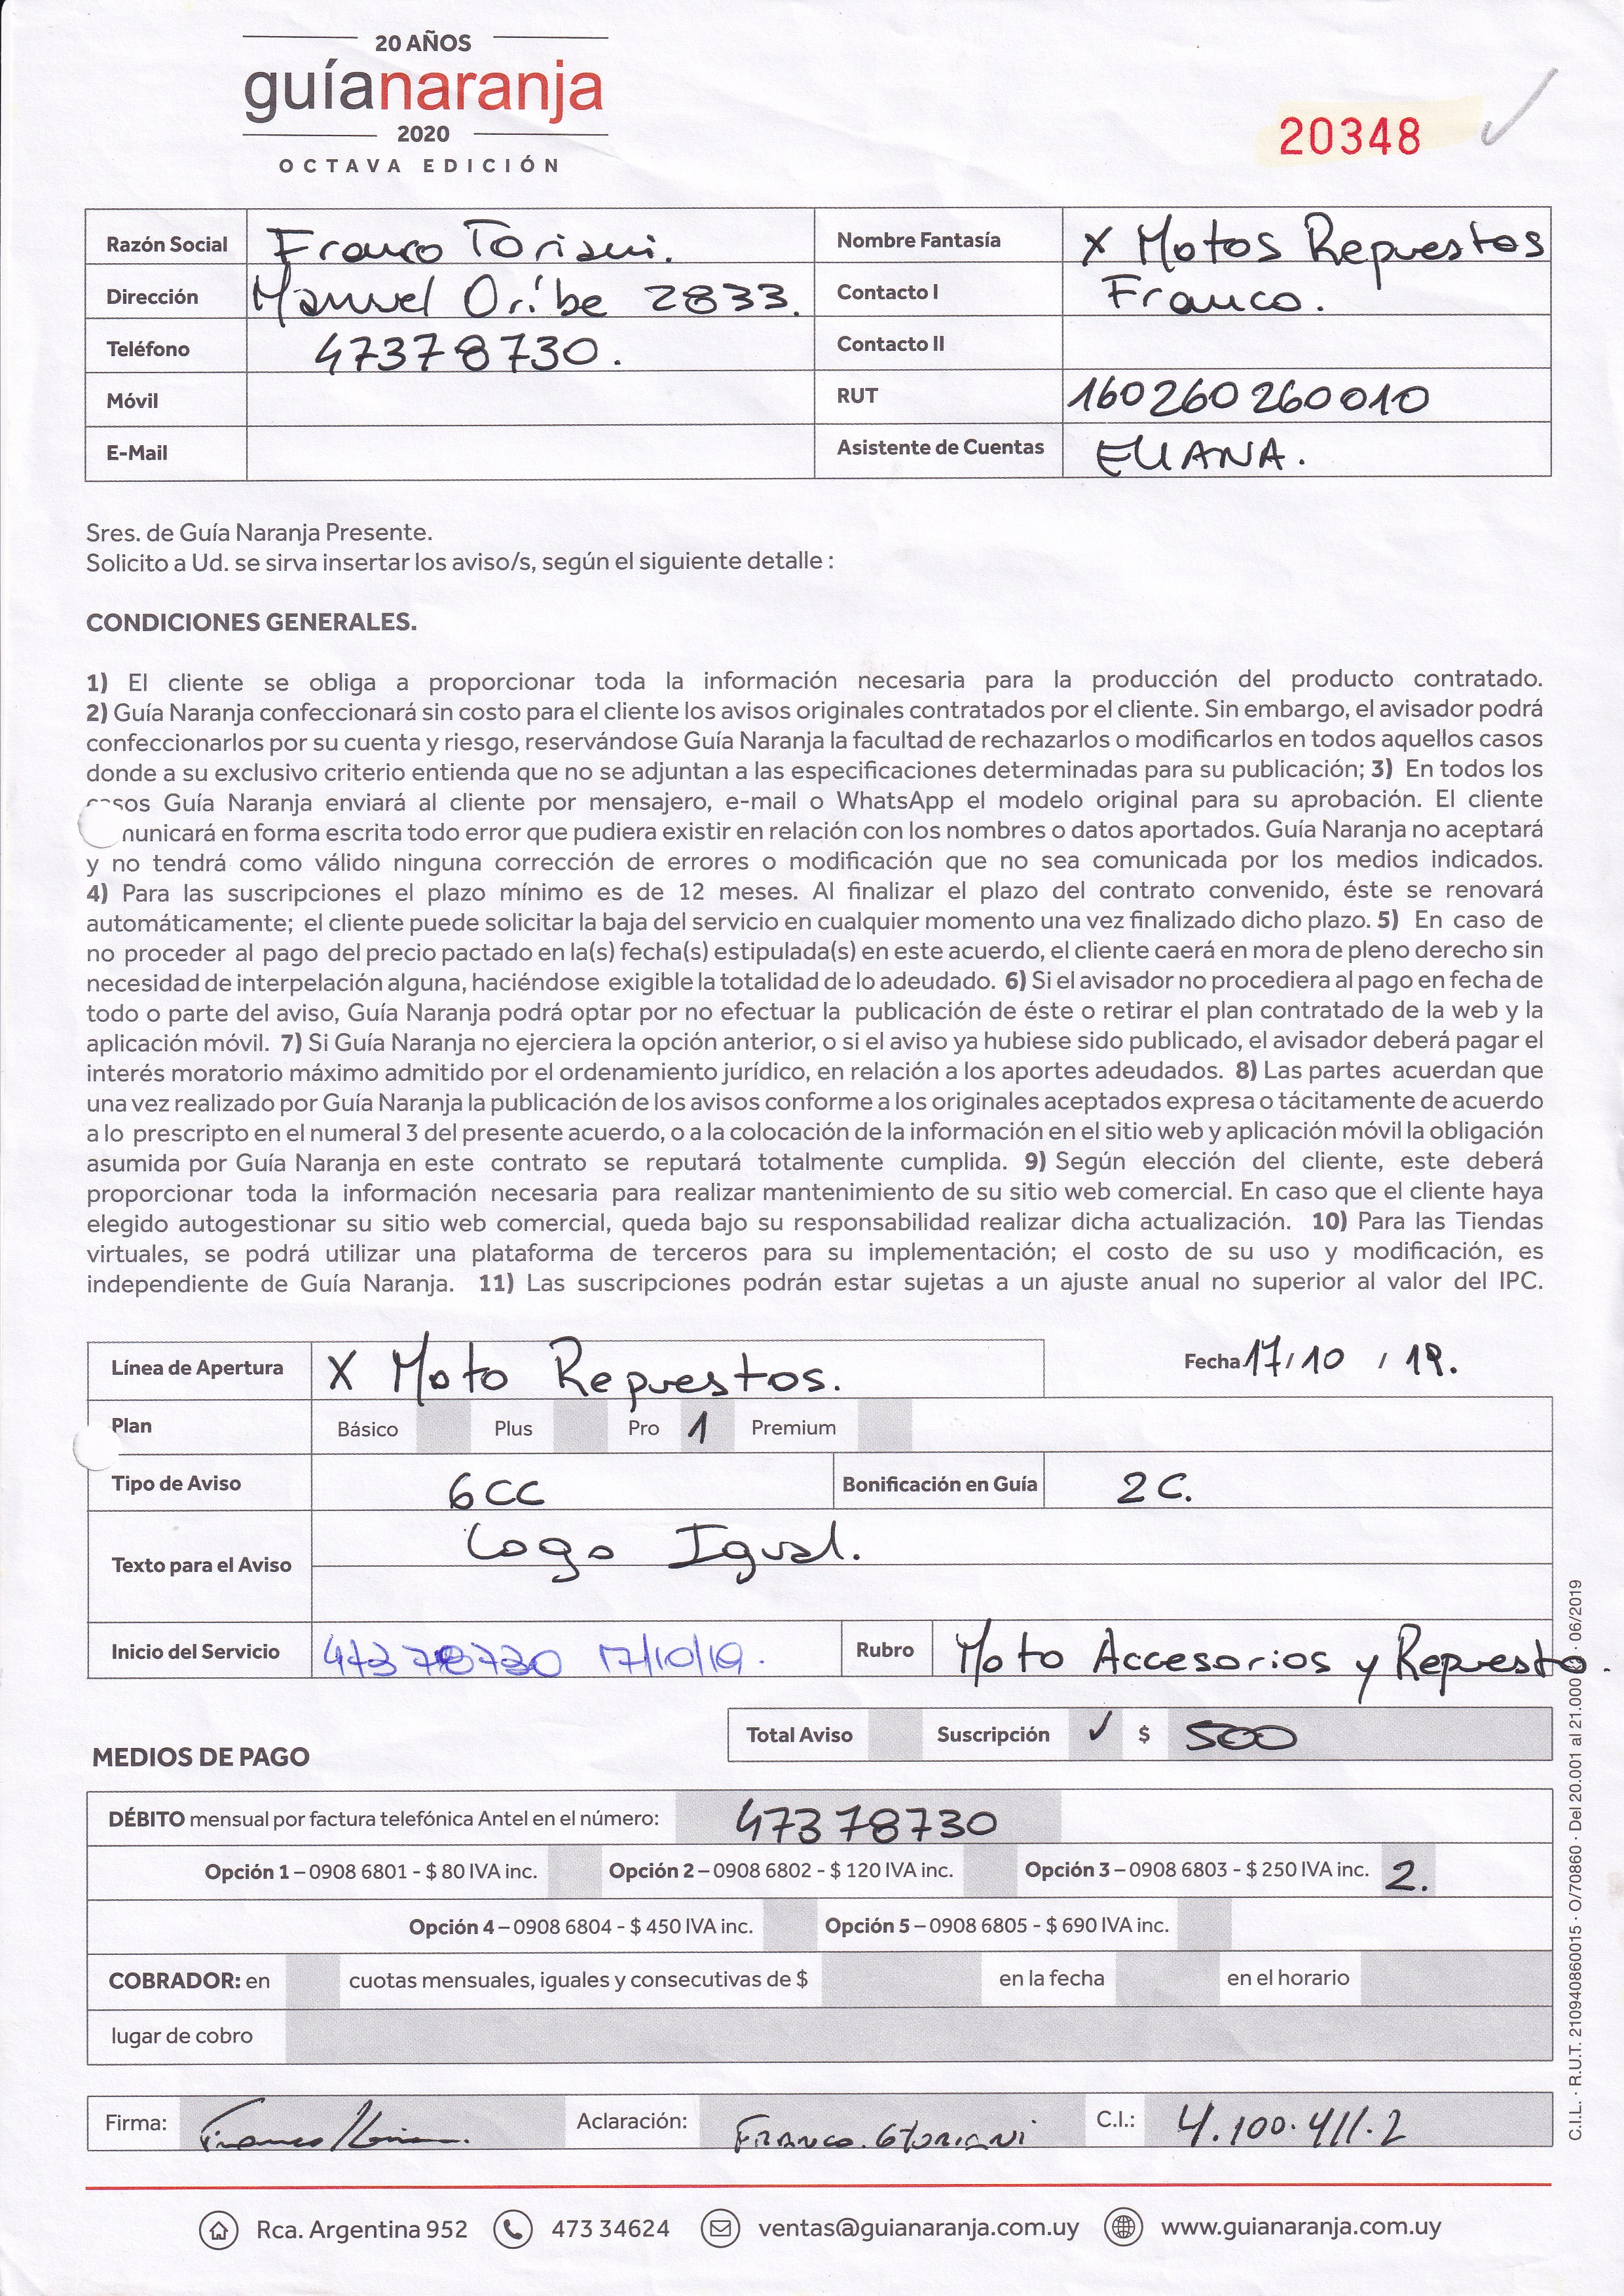 20 AÑOS
guíanaranja
2020
OCTAVA EDICIÓN
20348
Razón Social Franco Toriani. Nombre Fantasía X Motos Repuestos
Dirección Manuel Oribe 2833. Contacto I Franco.
Teléfono 47378730. Contacto II
Móvil RUT 160260260010
E-Mail Asistente de Cuentas ELIANA.
Sres. de Guía Naranja Presente.
Solicito a Ud. se sirva insertar los aviso/s, según el siguiente detalle :
CONDICIONES GENERALES.
1) El cliente se obliga a proporcionar toda la información necesaria para la producción del producto contratado.
2) Guía Naranja confeccionará sin costo para el cliente los avisos originales contratados por el cliente. Sin embargo, el avisador podrá
confeccionarlos por su cuenta y riesgo, reservándose Guía Naranja la facultad de rechazarlos o modificarlos en todos aquellos casos
donde a su exclusivo criterio entienda que no se adjuntan a las especificaciones determinadas para su publicación; 3) En todos los
sos Guía Naranja enviará al cliente por mensajero, e-mail o WhatsApp el modelo original para su aprobación. El cliente
municará en forma escrita todo error que pudiera existir en relación con los nombres o datos aportados. Guía Naranja no aceptará
y no tendrá como válido ninguna corrección de errores o modificación que no sea comunicada por los medios indicados.
4) Para las suscripciones el plazo mínimo es de 12 meses. Al finalizar el plazo del contrato convenido, éste se renovará
automáticamente; el cliente puede solicitar la baja del servicio en cualquier momento una vez finalizado dicho plazo. 5) En caso de
no proceder al pago del precio pactado en la(s) fecha(s) estipulada(s) en este acuerdo, el cliente caerá en mora de pleno derecho sin
necesidad de interpelación alguna, haciéndose exigible la totalidad de lo adeudado. 6) Si el avisador no procediera al pago en fecha de
todo o parte del aviso, Guía Naranja podrá optar por no efectuar la publicación de éste o retirar el plan contratado de la web y la
aplicación móvil. 7) Si Guía Naranja no ejerciera la opción anterior, o si el aviso ya hubiese sido publicado, el avisador deberá pagar el
interés moratorio máximo admitido por el ordenamiento jurídico, en relación a los aportes adeudados. 8) Las partes acuerdan que
una vez realizado por Guía Naranja la publicación de los avisos conforme a los originales aceptados expresa o tácitamente de acuerdo
a lo prescripto en el numeral 3 del presente acuerdo, o a la colocación de la información en el sitio web y aplicación móvil la obligación
asumida por Guía Naranja en este contrato se reputará totalmente cumplida. 9) Según elección del cliente, este deberá
proporcionar toda la información necesaria para realizar mantenimiento de su sitio web comercial. En caso que el cliente haya
elegido autogestionar su sitio web comercial, queda bajo su responsabilidad realizar dicha actualización. 10) Para las Tiendas
virtuales, se podrá utilizar una plataforma de terceros para su implementación; el costo de su uso y modificación, es
independiente de Guía Naranja. 11) Las suscripciones podrán estar sujetas a un ajuste anual no superior al valor del IPC.
Línea de Apertura X Moto Repuestos. Fecha 17/10 / 19.
Plan Básico Plus Pro 1 Premium
Tipo de Aviso 6CC Bonificación en Guía 2C.
Texto para el Aviso Logo Igual.
Inicio del Servicio 47378730 17/10/19. Rubro Moto Accesorios y Repuesto.
Total Aviso Suscripción ✓ $ 500
MEDIOS DE PAGO
DÉBITO mensual por factura telefónica Antel en el número: 47378730
Opción 1 – 0908 6801 - $ 80 IVA inc. Opción 2 – 0908 6802 - $ 120 IVA inc. Opción 3 – 0908 6803 - $ 250 IVA inc. 2.
Opción 4 – 0908 6804 - $ 450 IVA inc. Opción 5 – 0908 6805 - $ 690 IVA inc.
COBRADOR: en cuotas mensuales, iguales y consecutivas de $ en la fecha en el horario
lugar de cobro
Firma: Aclaración: Franco. Gtoriani C.I.: 4.100.411.2
Rca. Argentina 952 473 34624 ventas@guianaranja.com.uy www.guianaranja.com.uy
C.I.L. · R.U.T. 210940860015 · O/70860 · Del 20.001 al 21.000 · 06/2019